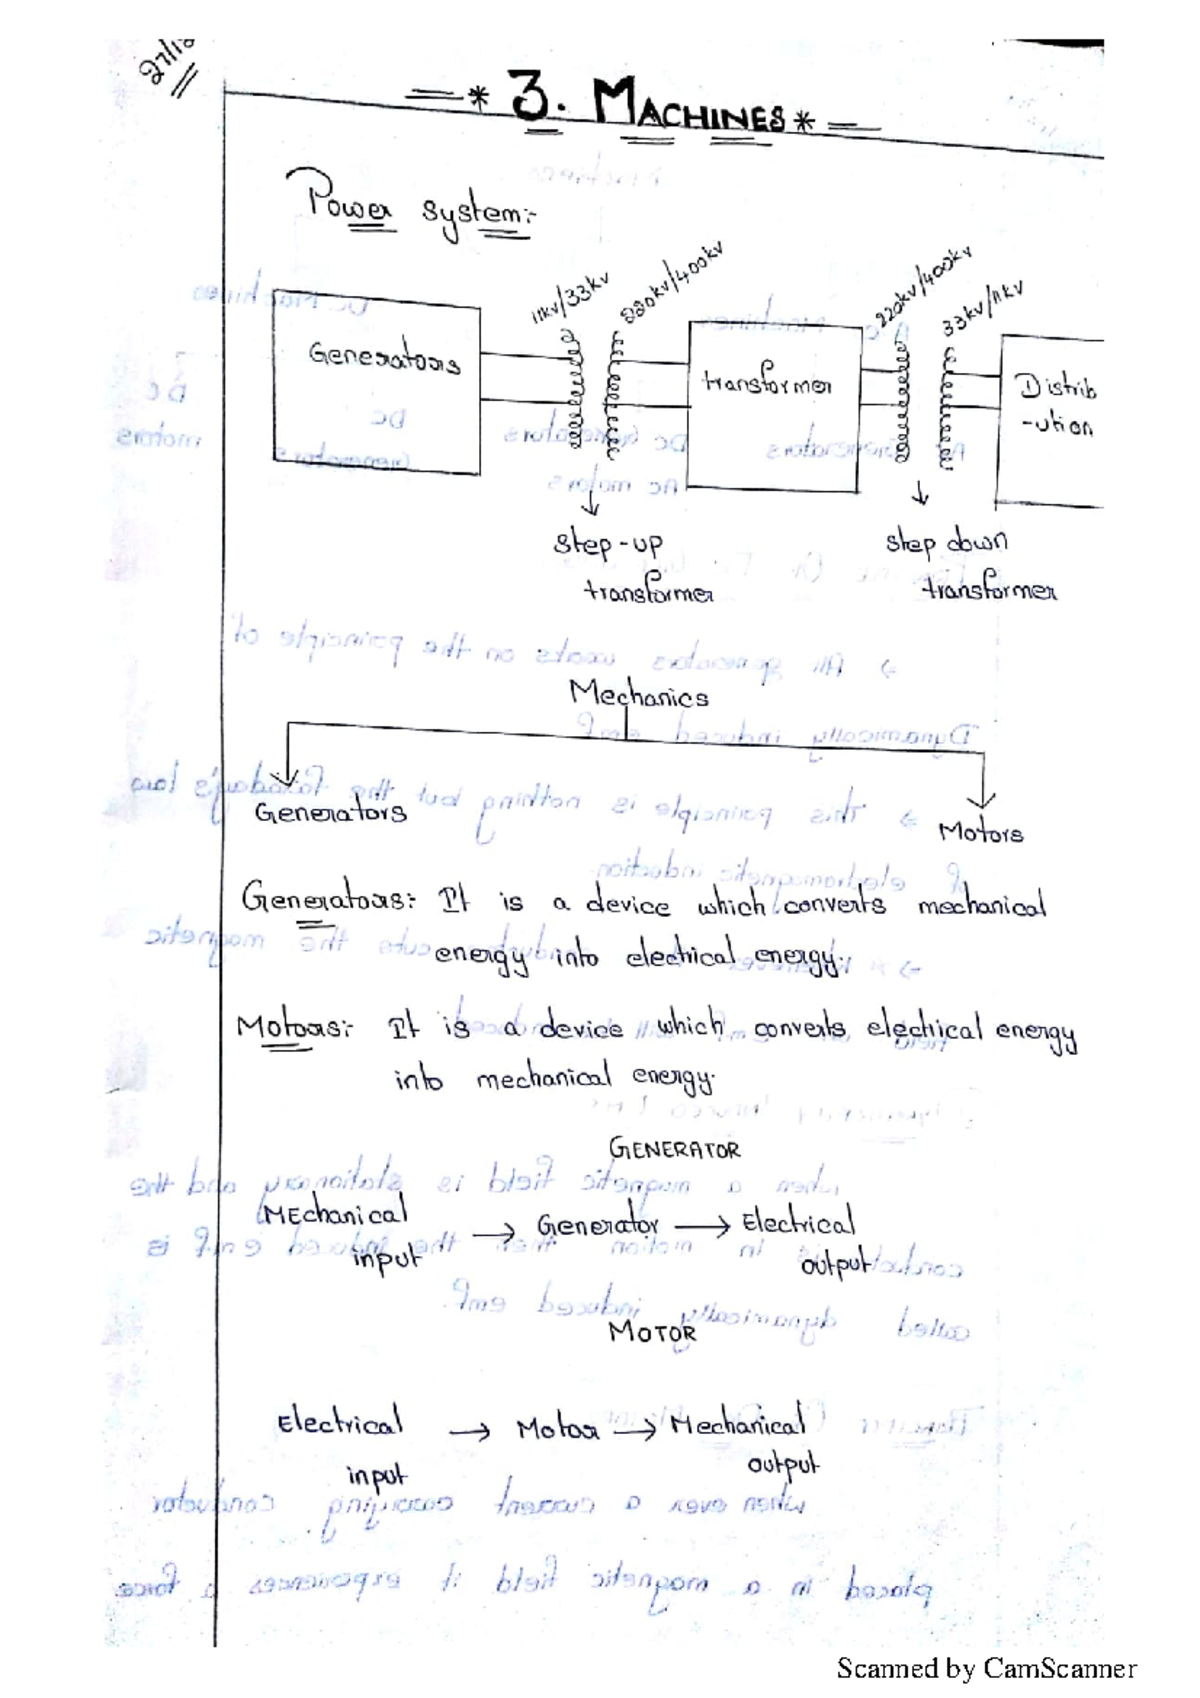 3. MACHINES
Power system:-
11kv/33kv
220kv/400kv
220kv/400kv
33kv/11kv
Generators
transformer
Distrib
-ution
step-up
transformer
step down
transformer
Mechanics
Generators
Motors
Generators:- It is a device which converts mechanical
energy into electrical energy.
Motors:- It is a device which converts electrical energy
into mechanical energy.
GENERATOR
MEchanical
input
→ Generator → Electrical
output
MOTOR
Electrical
input
→ Motor → Mechanical
output
Scanned by CamScanner